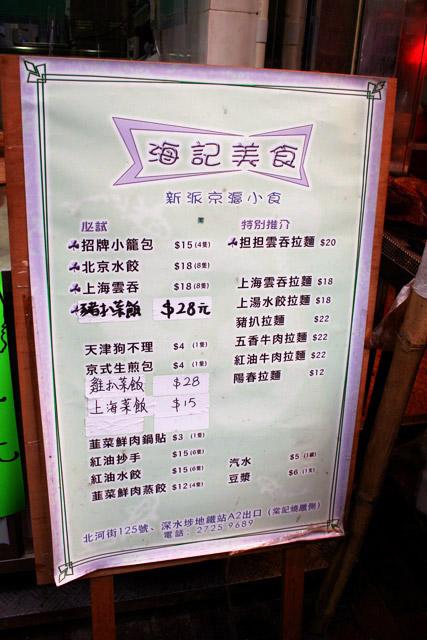 海記美食
新派京滬小食
必試
招牌小籠包 $15 (4隻)
北京水餃 $18 (8隻)
上海雲吞 $18 (8隻)
豬扒菜飯 $28元
天津狗不理 $4 (1隻)
京式生煎包 $4 (1隻)
雞扒菜飯 $28
上海菜飯 $15
韮菜鮮肉鍋貼 $3 (1隻)
紅油抄手 $15 (6隻)
紅油水餃 $15 (6隻)
韮菜鮮肉蒸餃 $12 (4隻)
特別推介
担担雲吞拉麵 $20
上海雲吞拉麵 $18
上湯水餃拉麵 $18
豬扒拉麵 $22
五香牛肉拉麵 $22
紅油牛肉拉麵 $22
陽春拉麵 $12
汽水 $5 (1罐)
豆漿 $6 (1支)
北河街125號、深水埗地鐵站A2出口 (棠記燒臘側)
電話：2725 9689